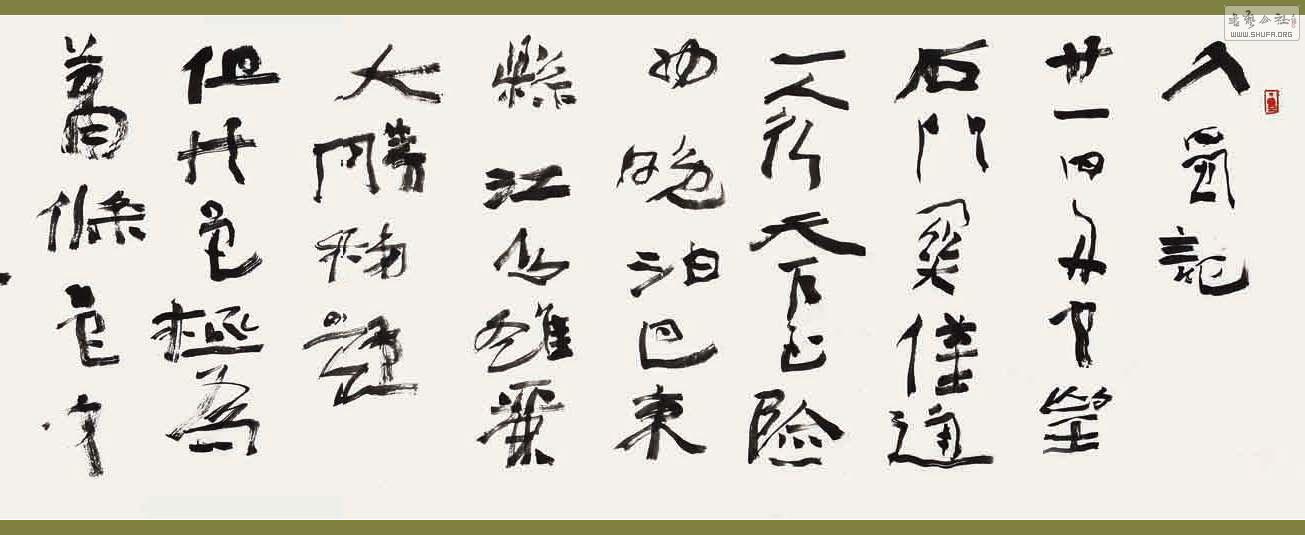 入蜀記
廿一日舟中望
石門関僅通
一人行天下至險
也晚泊巴東
縣江山雄麗
大勝秭歸
但井邑極為
蕭條邑中
书艺公社
WWW.SHUFA.ORG